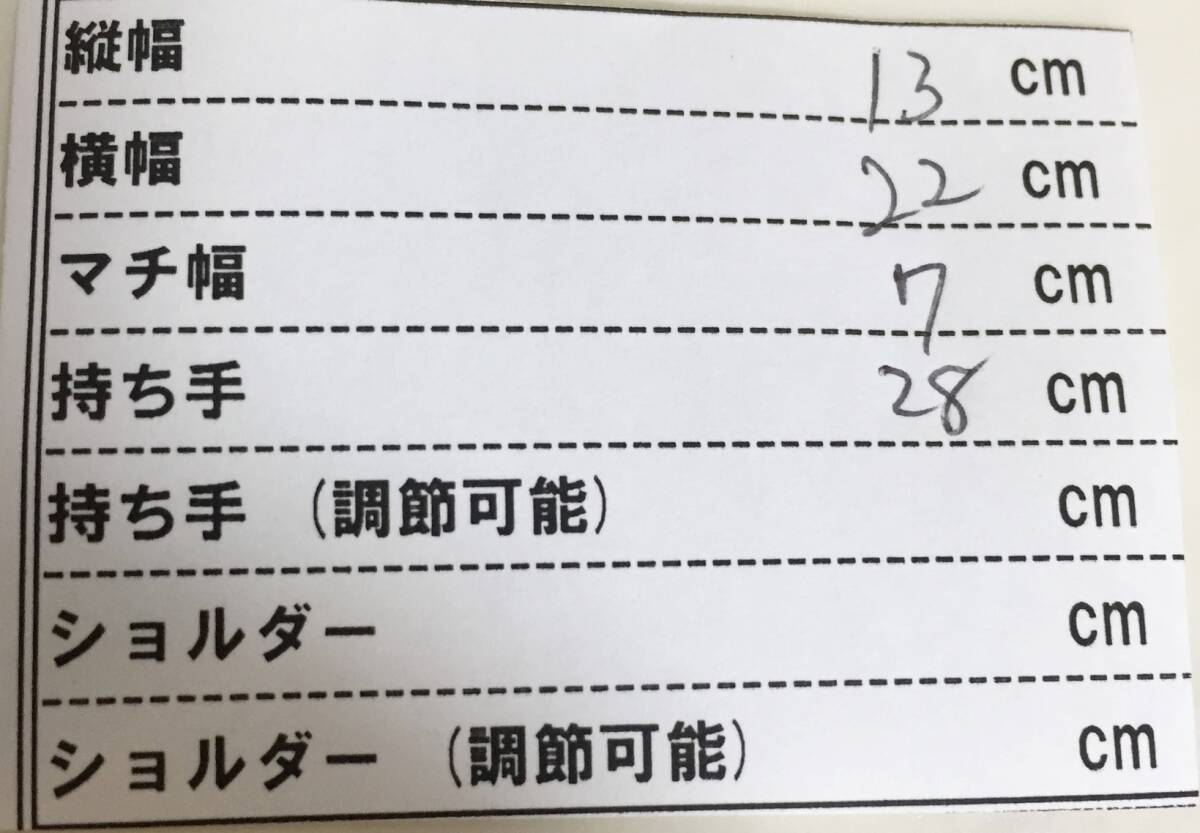 縦幅 13 cm
横幅 22 cm
マチ幅 7 cm
持ち手 28 cm
持ち手 (調節可能) cm
ショルダー cm
ショルダー (調節可能) cm